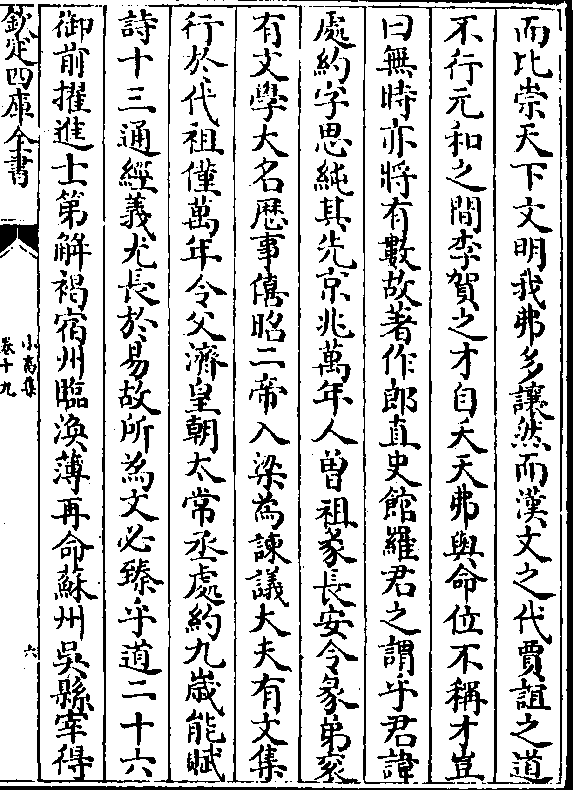 而比崇天下文明我弗多讓然而漢文之代賈誼之道
不行元和之間李賀之才自夭天弗與命位不稱才豈
曰無時亦將有數故著作郎直史館羅君之謂乎君諱
處約字思純其先京兆萬年人曽祖彖長安令彖弟衮
有文學大名歴事僖昭二帝入梁為諫議大夫有文集
行於代祖僅萬年令父濟皇朝太常丞處約九歳能賦
詩十三通經義尤長於易故所為文必臻乎道二十六
御前擢進士第解褐宿州臨渙薄再命蘇州吳縣宰得
欽定四庫全書
小畜集
卷十九
六